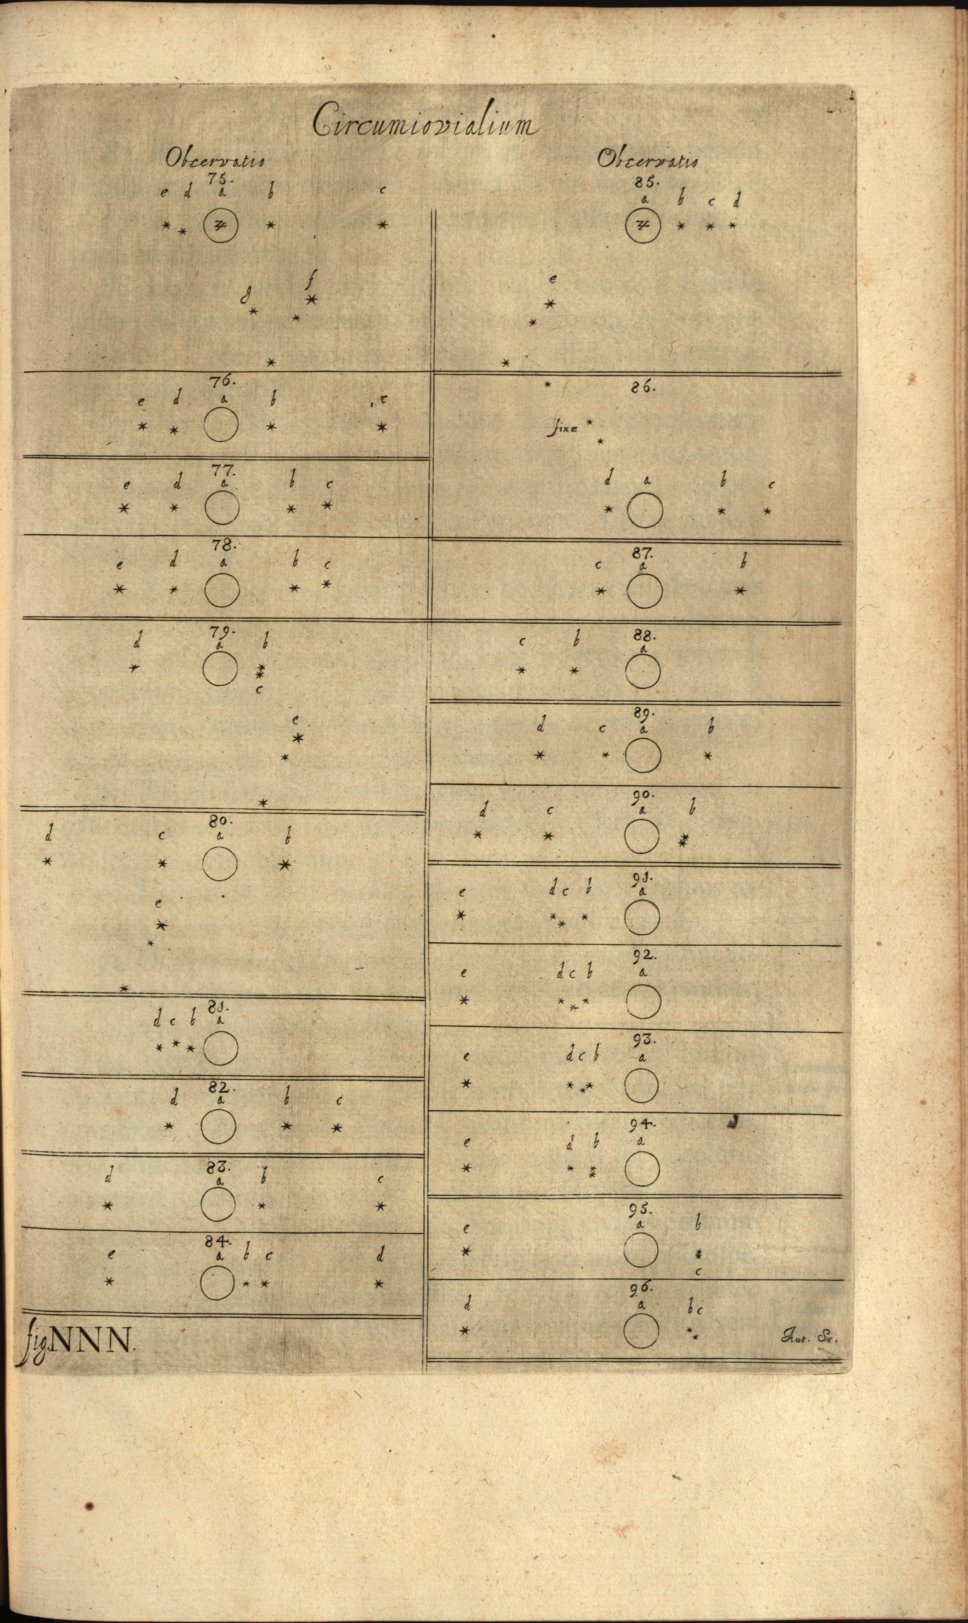 Circumiovialium
Observatio
75.
e d a b c
g f
76.
e d a b c
77.
e d a b c
78.
e d a b c
79.
d a b
c
e
80.
d c a b
e
81.
d c b a
82.
d a b c
83.
d a b c
84.
e a b c d
fig. NNN.
Observatio
85.
a b c d
e
86.
fixæ
d a b c
87.
c a b
88.
c b a
89.
d c a b
90.
d c a b
91.
e d c b a
92.
e d c b a
93.
e d c b a
94.
e d b a
95.
e a b
c
96.
d a b c